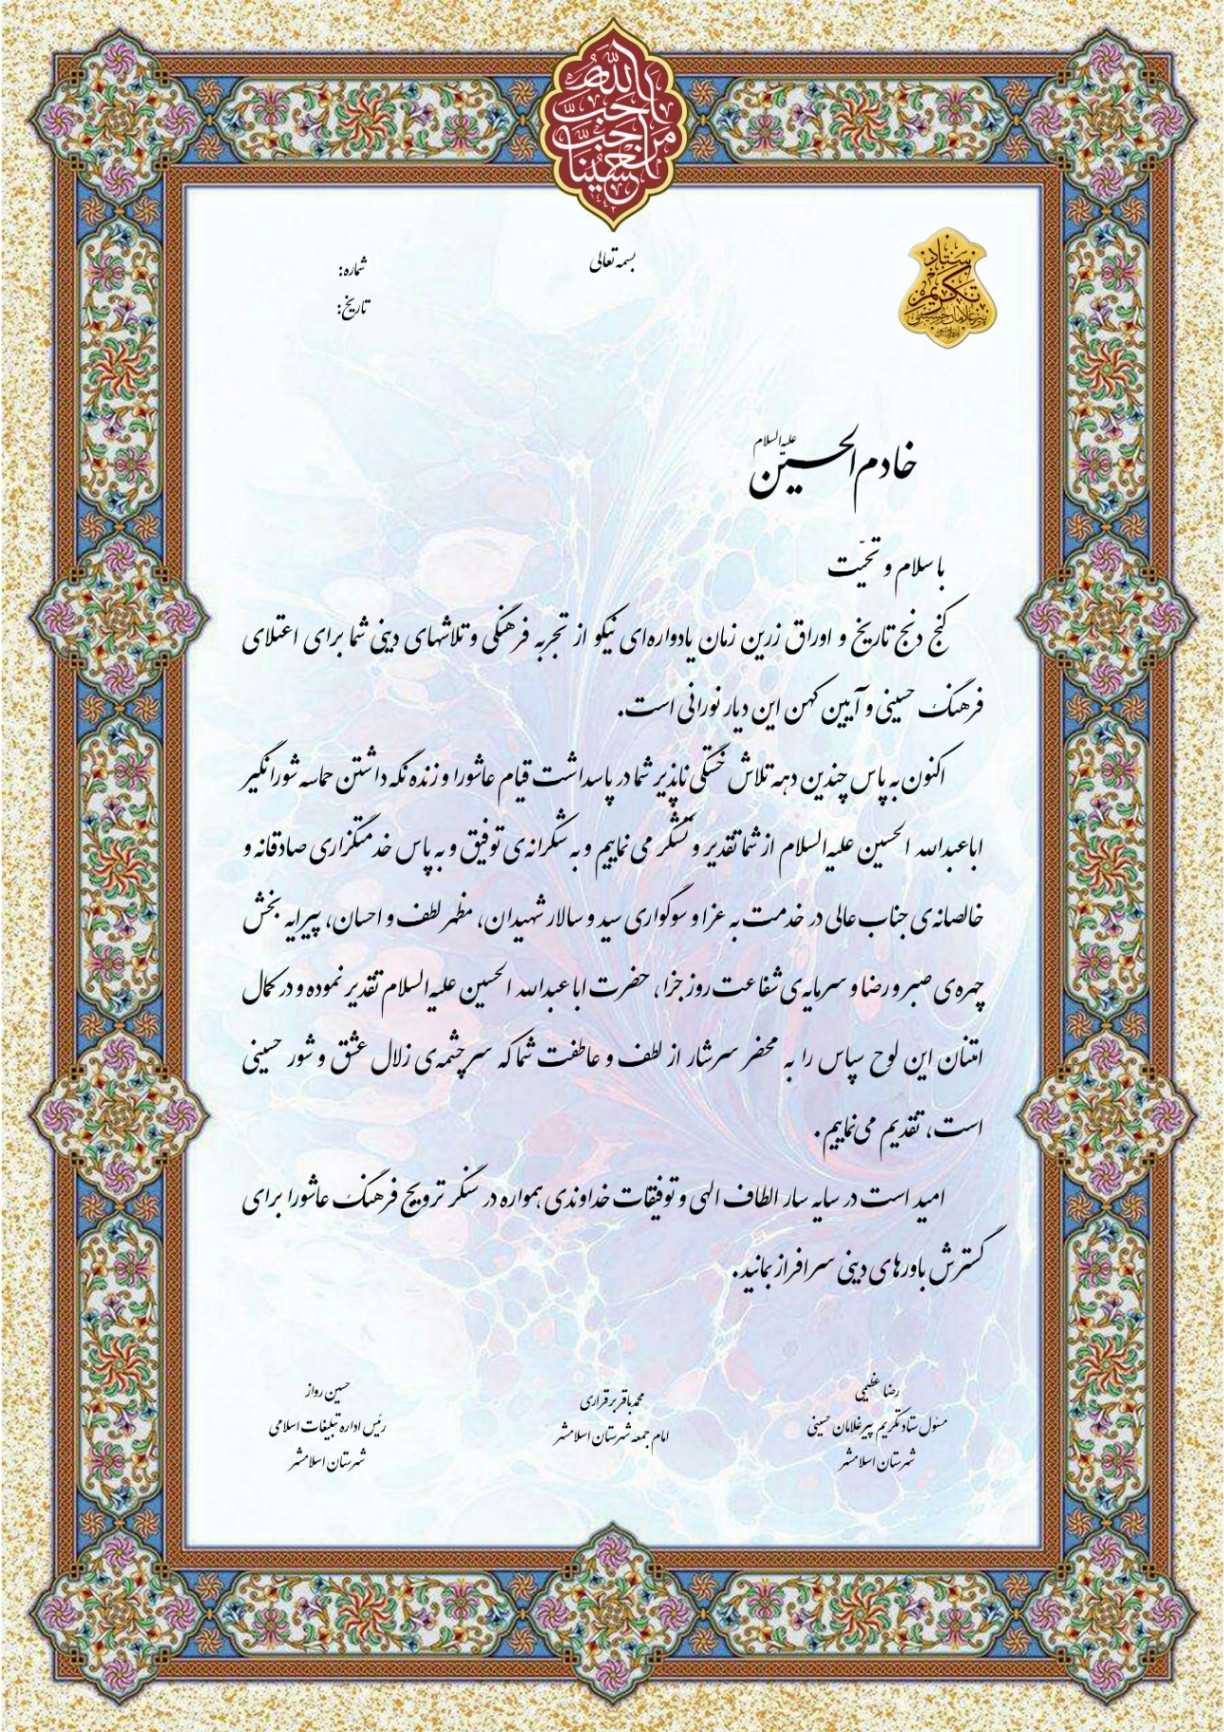 احب الله من احب حسینا
بسمه تعالی
شماره:
تاریخ:
ستاد
تکریم
پیرغلامان حسینی
خادم الحسین علیه السلام
با سلام و تحیّت
گنج دنج تاریخ و اوراق زرین زمان یادواره‌ای نیکو از تجربه فرهنگی و تلاشهای دینی شما برای اعتلای
فرهنگ حسینی و آیین کهن این دیار نورانی است.
اکنون به پاس چندین دهه تلاش خستگی ناپذیر شما در پاسداشت قیام عاشورا و زنده نگه داشتن حماسه شورانگیر
اباعبدالله الحسین علیه السلام از شما تقدیر و تشکّر می نماییم و به شکرانه‌ی توفیق و به پاس خدمتگزاری صادقانه و
خالصانه‌ی جناب عالی در خدمت به عزا و سوگواری سید و سالار شهیدان، مظهر لطف و احسان، پیرایه بخش
چهره‌ی صبر و رضا و سرمایه‌ی شفاعت روز جزا، حضرت اباعبدالله الحسین علیه السلام تقدیر نموده و در کمال
امتنان این لوح سپاس را به محضر سرشار از لطف و عاطفت شما که سرچشمه‌ی زلال عشق و شور حسینی
است، تقدیم می‌نماییم.
امید است در سایه سار الطاف الهی و توفیقات خداوندی همواره در سنگر ترویج فرهنگ عاشورا برای
گسترش باورهای دینی سرافراز بمانید.
رضا عظیمی
مسئول ستاد تکریم پیرغلامان حسینی
شهرستان اسلامشهر
محمدباقر برقراری
امام جمعه شهرستان اسلامشهر
حسین رواز
رئیس اداره تبلیغات اسلامی
شهرستان اسلامشهر